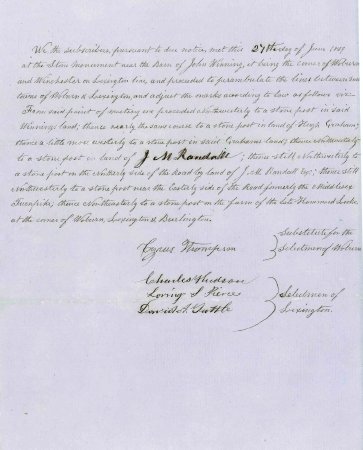 We the subscribers, pursuant to due notice, met this 27th day of June 1859
at the Stone Monument near the Barn of John Winning, it being the corner of Woburn
and Winchester on Lexington line, and proceeded to perambulate the lines between said
towns of Woburn & Lexington, and adjust the marks according to law as follows viz.
From said point of meeting we proceeded northwesterly to a stone post in said
Winnings land; thence nearly the same course to a stone post in land of Hugh Graham;
thence a little more westerly to a stone post in said Grahams land; thence northwesterly
to a stone post in land of J. M. Randall; thence still Northwesterly to
a stone post on the Northerly side of the road by land of J. M. Randall Esq; thence still
northwesterly to a stone post near the Easterly side of the Road formerly the Middlesex
Turnpike; thence Northwesterly to a stone post on the farm of the late Hammond Locke
at the corner of Woburn, Lexington & Burlington.
Cyrus Thompson
Substitute for the
Selectmen of Woburn
Charles Hudson
Loring S Pierce
David A. Tuttle
Selectmen of
Lexington.